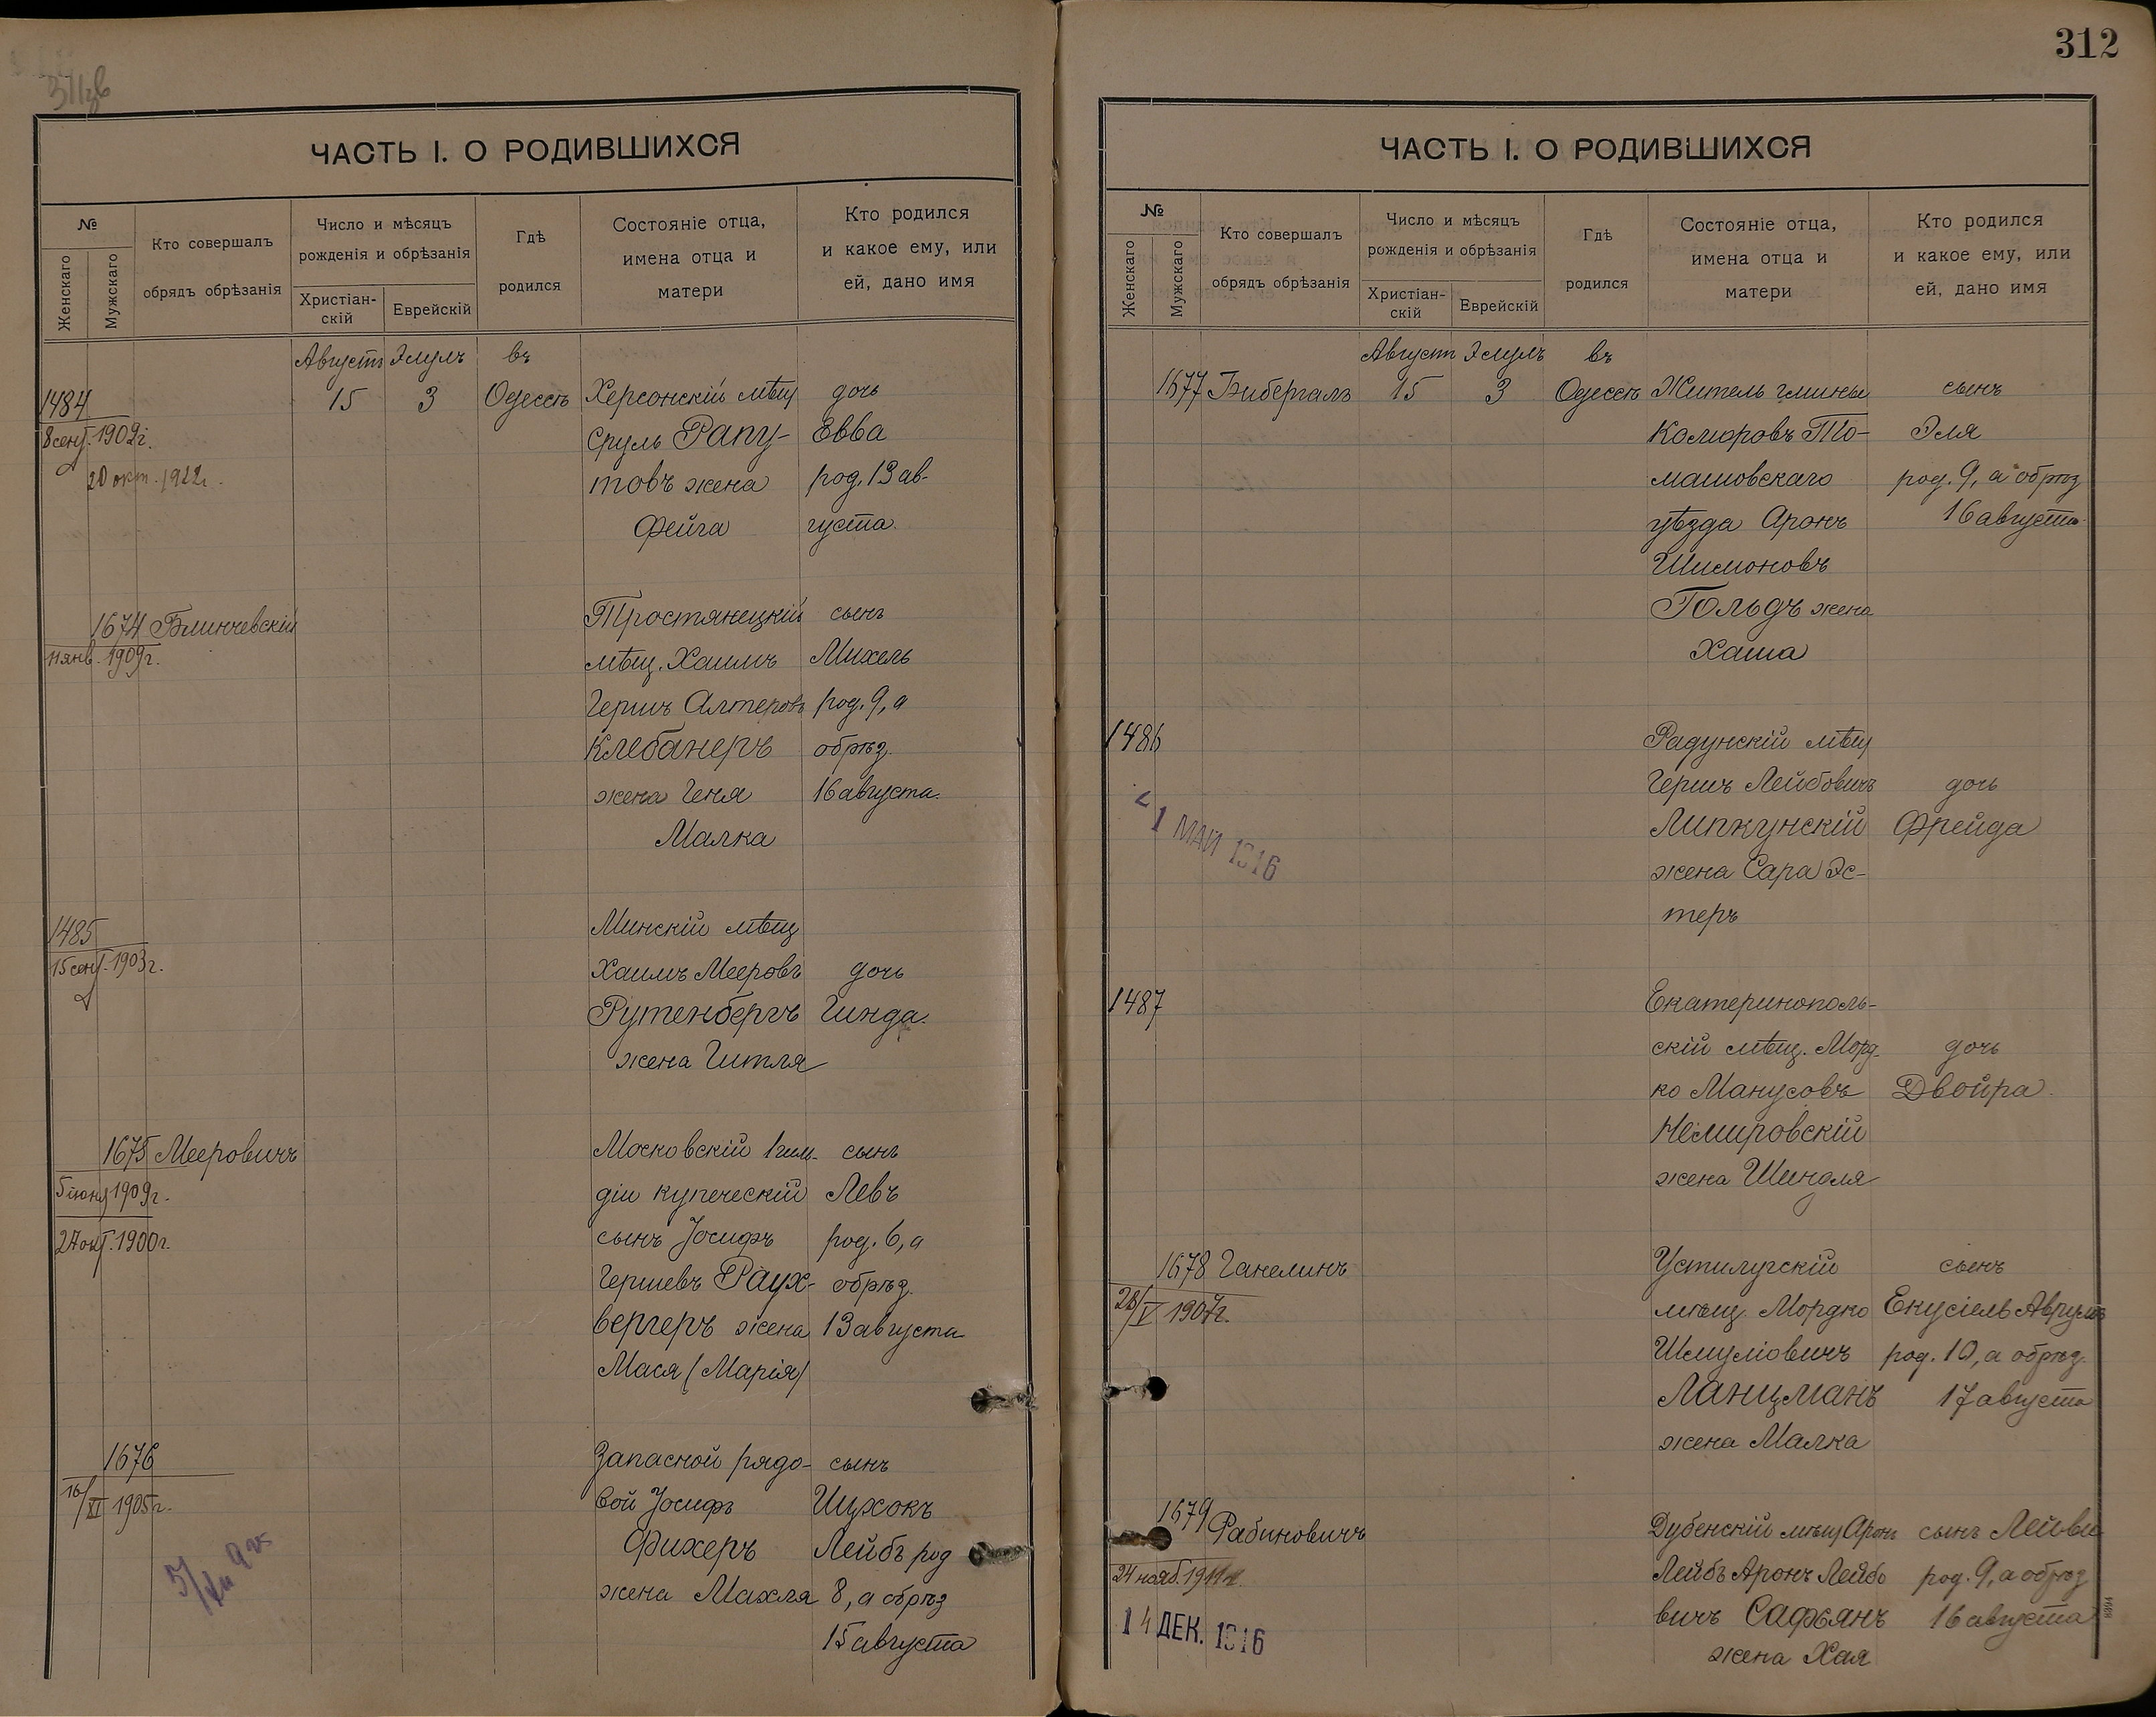 ЧАСТЬ I. О РОДИВШИХСЯ
№
Женскаго
Мужскаго
Кто совершалъ
обрядъ обрѣзанія
Число и мѣсяцъ
рожденія и обрѣзанія
Христіан-
скій
Еврейскій
Гдѣ
родился
Состояніе отца,
имена отца и
матери
Кто родился
и какое ему, или
ей, дано имя
Августъ Элулъ въ
1484 15 3 Одессѣ Херсонскій мѣщ дочь
8 сент. 1902 г. Сруль Рапу- Евва
20 окт. 1922 г. товъ жена род. 13 ав-
Фейга густа.
1674 Блинчевскій Тростянецкій сынъ
11 янв. 1909 г. мѣщ. Хаимъ Михель
Гершъ Алтеровъ род. 9, а
Клебанеръ обрѣз.
жена Геня 16 августа.
Малка
1485 Минскій мѣщ
15 сент. 1903 г. Хаимъ Мееровъ дочь
Рутенбергъ Гинда.
жена Гитля
1675 Мееровичъ Московскій 1 гил- сынъ
5 іюня 1909 г. діи купеческій Левъ
27 окт. 1900 г. сынъ Іосифъ род. 6, а
Гершевъ Раух- обрѣз.
вергеръ жена 13 августа
Мася (Марія)
1676 Запасной рядо- сынъ
16/XI 1905 г. вой Іосифъ Ицхокъ
Фихеръ Лейбъ род
жена Махля 8, а обрѣз
15 августа
312
ЧАСТЬ I. О РОДИВШИХСЯ
№
Женскаго
Мужскаго
Кто совершалъ
обрядъ обрѣзанія
Число и мѣсяцъ
рожденія и обрѣзанія
Христіан-
скій
Еврейскій
Гдѣ
родился
Состояніе отца,
имена отца и
матери
Кто родился
и какое ему, или
ей, дано имя
Августъ Элулъ въ
1677 Бибергалъ 15 3 Одессѣ Житель гмины сынъ
Коморовъ То- Эля
машовскаго род. 9, а обрѣз
уѣзда Аронъ 16 августа
Шимоновъ
Гольдъ жена
Хаша
1486 Радунскій мѣщ
Гершъ Лейбовичъ дочь
1 МАЙ 1916 Липкунскій Фрейда
жена Сара Эс-
теръ
1487 Екатеринополь-
скій мѣщ. Морд- дочь
ко Манусовъ Двойра.
Немировскій
жена Шендля
1678 Ганелинъ Устилугскій сынъ
28/V 1907 г. мѣщ. Мордко Екусіель Аврумъ
Шмуліовичъ род. 10, а обрѣз.
Ланцманъ 17 августа
жена Малка
1679 Рабиновичъ Дубенскій мѣщ Аронъ сынъ Лейви
24 нояб. Лейбъ Аронъ Лейбо род. 9, а обрѣз
14 ДЕК. 1916 вичъ Сафьянъ 16 августа
жена Хая